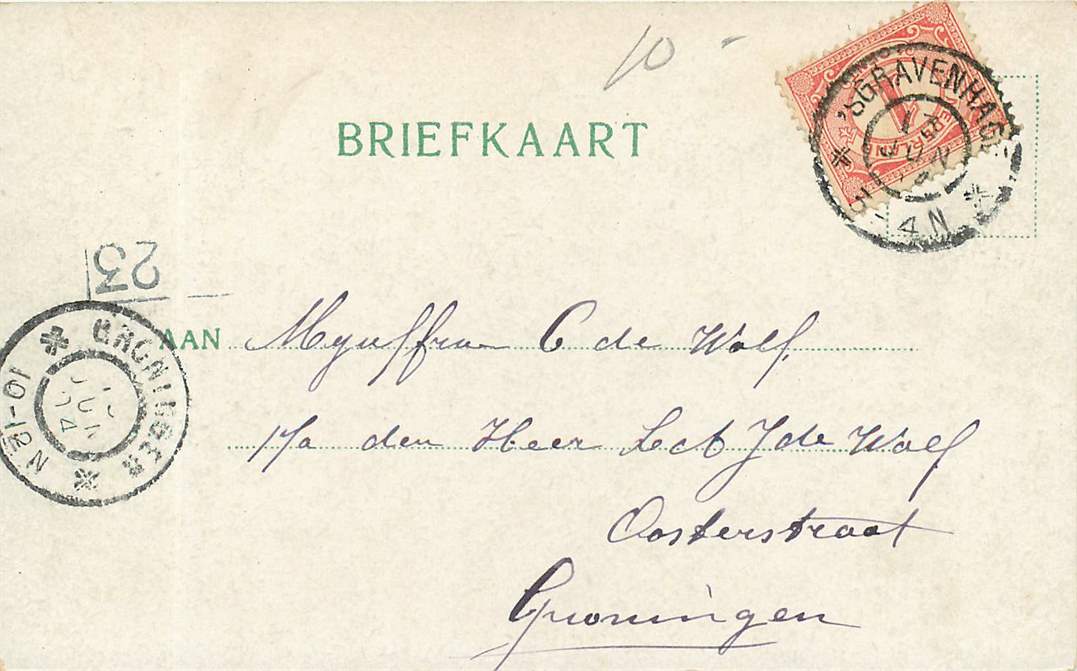 10 -
BRIEFKAART
'SGRAVENHAGE
JUN
4N
23
GRONINGEN
10-12N
JUN
04
AAN Mejuffrouw C de Wolf
p/a den Heer de Wolf
Oosterstraat
Groningen